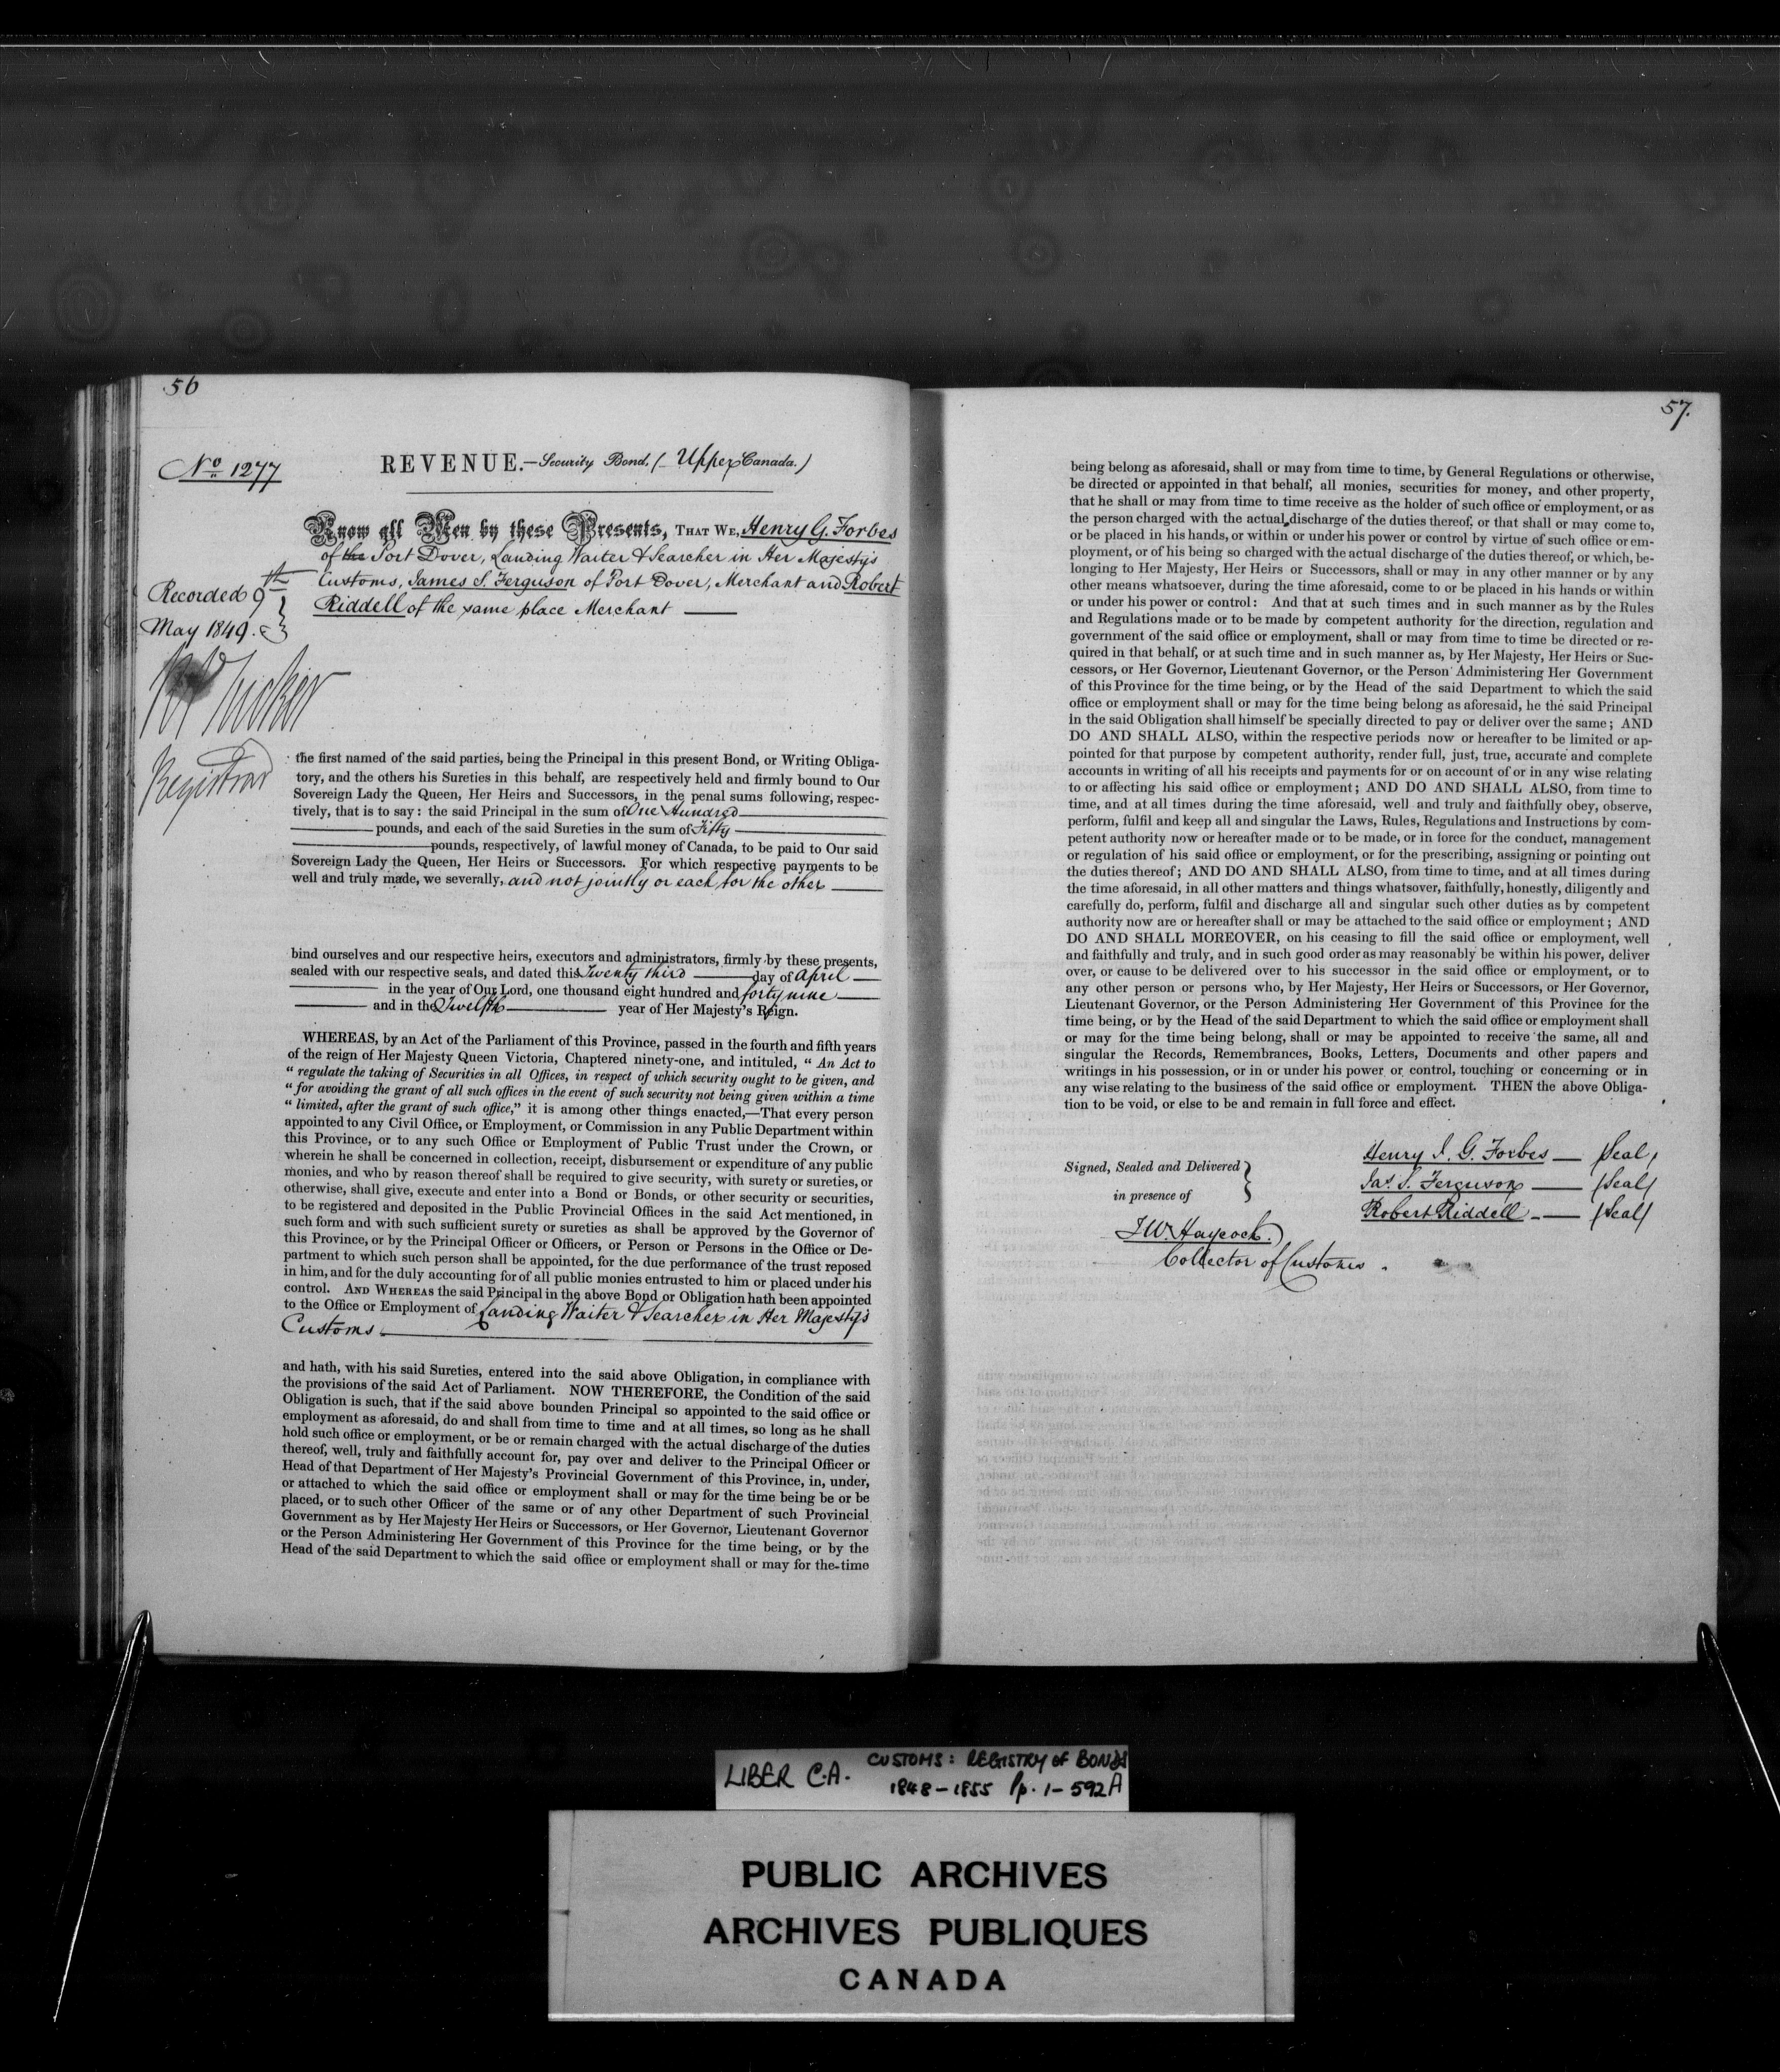 56
No 1277
REVENUE.—Security Bond, (Upper Canada.)
Know all Men by these Presents, THAT WE, Henry G. Forbes
of the Port Dover, Landing Waiter & Searcher in Her Majesty's
Customs, James S. Ferguson of Port Dover, Merchant and Robert
Riddell of the same place Merchant
Recorded 9th
May 1849.
Tucker
Registrar
the first named of the said parties, being the Principal in this present Bond, or Writing Obliga-
tory, and the others his Sureties in this behalf, are respectively held and firmly bound to Our
Sovereign Lady the Queen, Her Heirs and Successors, in the penal sums following, respec-
tively, that is to say: the said Principal in the sum of One Hundred
pounds, and each of the said Sureties in the sum of Fifty
pounds, respectively, of lawful money of Canada, to be paid to Our said
Sovereign Lady the Queen, Her Heirs or Successors. For which respective payments to be
well and truly made, we severally, and not jointly or each for the other
bind ourselves and our respective heirs, executors and administrators, firmly by these presents,
sealed with our respective seals, and dated this Twenty third day of April
in the year of Our Lord, one thousand eight hundred and forty nine
and in the Twelfth year of Her Majesty's Reign.
WHEREAS, by an Act of the Parliament of this Province, passed in the fourth and fifth years
of the reign of Her Majesty Queen Victoria, Chaptered ninety-one, and intituled, " An Act to
" regulate the taking of Securities in all Offices, in respect of which security ought to be given, and
" for avoiding the grant of all such offices in the event of such security not being given within a time
" limited, after the grant of such office," it is among other things enacted,—That every person
appointed to any Civil Office, or Employment, or Commission in any Public Department within
this Province, or to any such Office or Employment of Public Trust under the Crown, or
wherein he shall be concerned in collection, receipt, disbursement or expenditure of any public
monies, and who by reason thereof shall be required to give security, with surety or sureties, or
otherwise, shall give, execute and enter into a Bond or Bonds, or other security or securities,
to be registered and deposited in the Public Provincial Offices in the said Act mentioned, in
such form and with such sufficient surety or sureties as shall be approved by the Governor of
this Province, or by the Principal Officer or Officers, or Person or Persons in the Office or De-
partment to which such person shall be appointed, for the due performance of the trust reposed
in him, and for the duly accounting for of all public monies entrusted to him or placed under his
control. AND WHEREAS the said Principal in the above Bond or Obligation hath been appointed
to the Office or Employment of Landing Waiter & Searcher in Her Majesty's
Customs.
and hath, with his said Sureties, entered into the said above Obligation, in compliance with
the provisions of the said Act of Parliament. NOW THEREFORE, the Condition of the said
Obligation is such, that if the said above bounden Principal so appointed to the said office or
employment as aforesaid, do and shall from time to time and at all times, so long as he shall
hold such office or employment, or be or remain charged with the actual discharge of the duties
thereof, well, truly and faithfully account for, pay over and deliver to the Principal Officer or
Head of that Department of Her Majesty's Provincial Government of this Province, in, under,
or attached to which the said office or employment shall or may for the time being be or be
placed, or to such other Officer of the same or of any other Department of such Provincial
Government as by Her Majesty Her Heirs or Successors, or Her Governor, Lieutenant Governor
or the Person Administering Her Government of this Province for the time being, or by the
Head of the said Department to which the said office or employment shall or may for the time
57.
being belong as aforesaid, shall or may from time to time, by General Regulations or otherwise,
be directed or appointed in that behalf, all monies, securities for money, and other property,
that he shall or may from time to time receive as the holder of such office or employment, or as
the person charged with the actual discharge of the duties thereof, or that shall or may come to,
or be placed in his hands, or within or under his power or control by virtue of such office or em-
ployment, or of his being so charged with the actual discharge of the duties thereof, or which, be-
longing to Her Majesty, Her Heirs or Successors, shall or may in any other manner or by any
other means whatsoever, during the time aforesaid, come to or be placed in his hands or within
or under his power or control: And that at such times and in such manner as by the Rules
and Regulations made or to be made by competent authority for the direction, regulation and
government of the said office or employment, shall or may from time to time be directed or re-
quired in that behalf, or at such time and in such manner as, by Her Majesty, Her Heirs or Suc-
cessors, or Her Governor, Lieutenant Governor, or the Person Administering Her Government
of this Province for the time being, or by the Head of the said Department to which the said
office or employment shall or may for the time being belong as aforesaid, he the said Principal
in the said Obligation shall himself be specially directed to pay or deliver over the same; AND
DO AND SHALL ALSO, within the respective periods now or hereafter to be limited or ap-
pointed for that purpose by competent authority, render full, just, true, accurate and complete
accounts in writing of all his receipts and payments for or on account of or in any wise relating
to or affecting his said office or employment; AND DO AND SHALL ALSO, from time to
time, and at all times during the time aforesaid, well and truly and faithfully obey, observe,
perform, fulfil and keep all and singular the Laws, Rules, Regulations and Instructions by com-
petent authority now or hereafter made or to be made, or in force for the conduct, management
or regulation of his said office or employment, or for the prescribing, assigning or pointing out
the duties thereof; AND DO AND SHALL ALSO, from time to time, and at all times during
the time aforesaid, in all other matters and things whatsover, faithfully, honestly, diligently and
carefully do, perform, fulfil and discharge all and singular such other duties as by competent
authority now are or hereafter shall or may be attached to the said office or employment; AND
DO AND SHALL MOREOVER, on his ceasing to fill the said office or employment, well
and faithfully and truly, and in such good order as may reasonably be within his power, deliver
over, or cause to be delivered over to his successor in the said office or employment, or to
any other person or persons who, by Her Majesty, Her Heirs or Successors, or Her Governor,
Lieutenant Governor, or the Person Administering Her Government of this Province for the
time being, or by the Head of the said Department to which the said office or employment shall
or may for the time being belong, shall or may be appointed to receive the same, all and
singular the Records, Remembrances, Books, Letters, Documents and other papers and
writings in his possession, or in or under his power or control, touching or concerning or in
any wise relating to the business of the said office or employment. THEN the above Obliga-
tion to be void, or else to be and remain in full force and effect.
Signed, Sealed and Delivered
in presence of
Henry I. G. Forbes (Seal)
Jas. S. Ferguson (Seal)
Robert Riddell (Seal)
J.W. Haycock.
Collector of Customs.
LIBER C.A. CUSTOMS: REGISTRY OF BONDS
1848-1855 Pp. 1-592A
PUBLIC ARCHIVES
ARCHIVES PUBLIQUES
CANADA